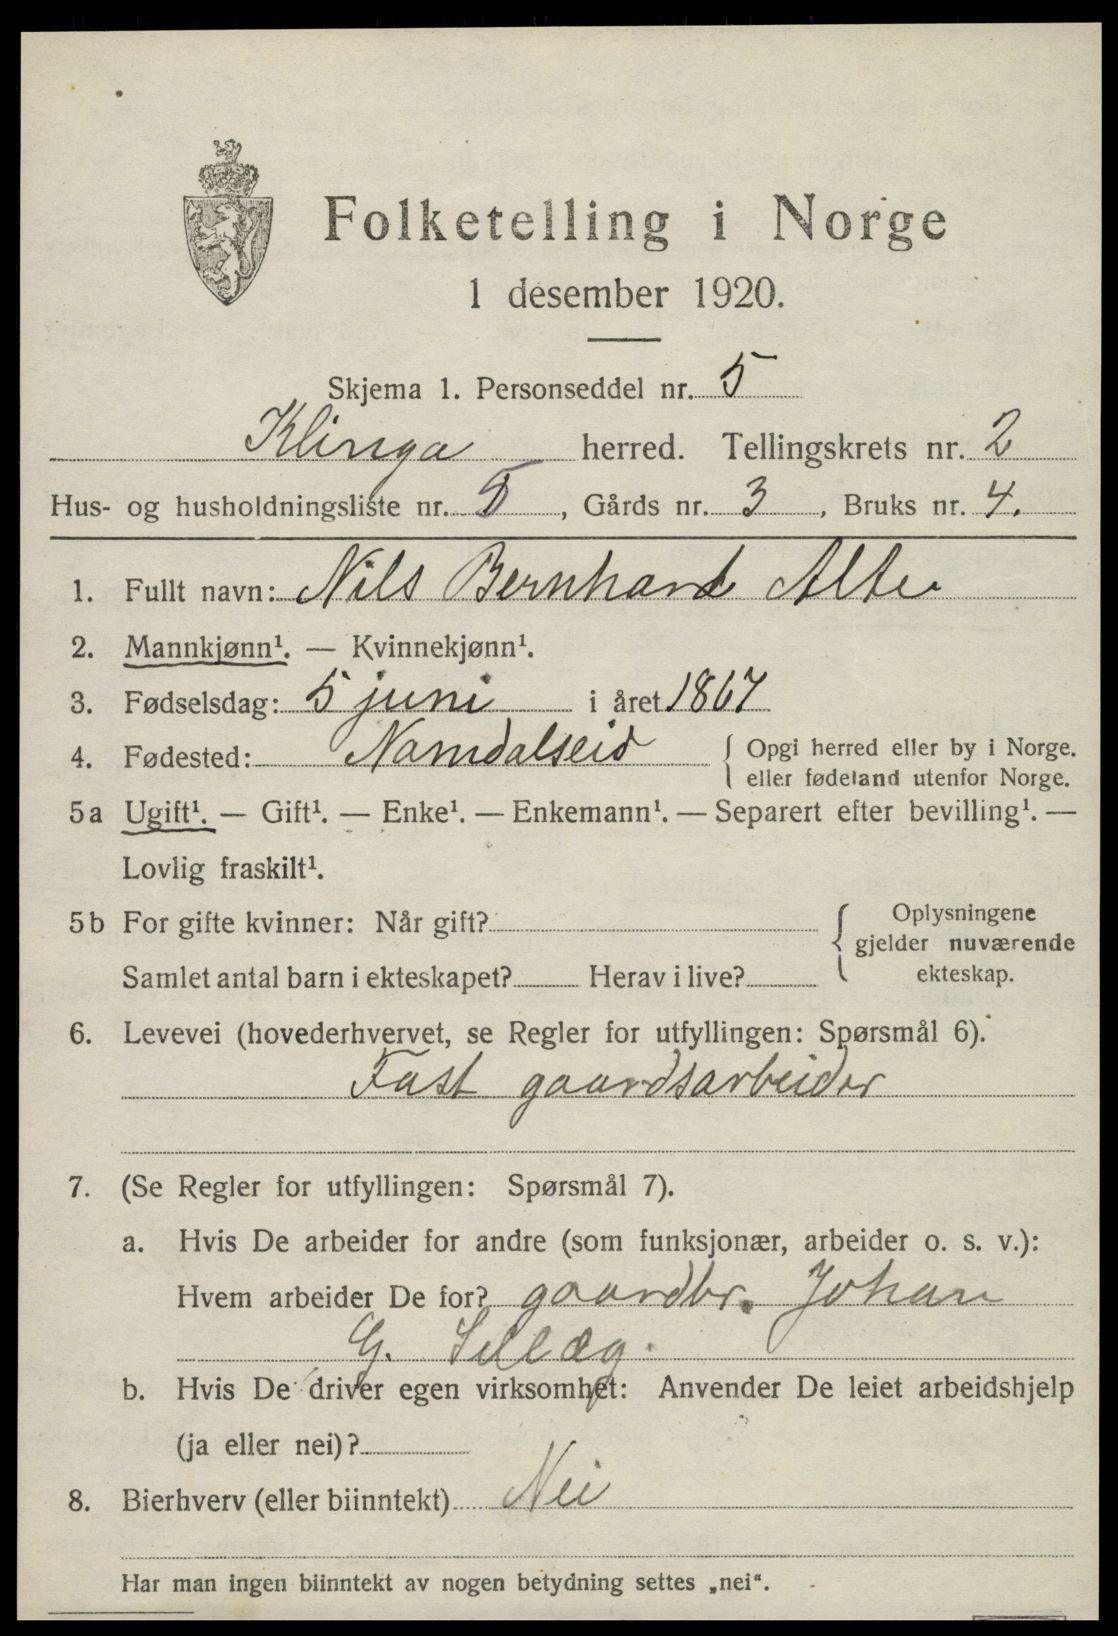 Folketelling i Norge
1 desember 1920.
Skjema 1. Personseddel nr. 5
Klinga herred. Tellingskrets nr. 2
Hus- og husholdningsliste nr. 5, Gårds nr. 3, Bruks nr. 4.
1. Fullt navn: Nils Bernhard Alte
2. Mannkjønn¹. — Kvinnekjønn¹.
3. Fødselsdag: 5 juni i året 1867
4. Fødested: Namdalseid { Opgi herred eller by i Norge.
eller fødeland utenfor Norge.
5a Ugift¹. — Gift¹. — Enke¹. — Enkemann¹. — Separert efter bevilling¹. —
Lovlig fraskilt¹.
5b For gifte kvinner: Når gift?
Samlet antal barn i ekteskapet? Herav i live?
{ Oplysningene
gjelder nuværende
ekteskap.
6. Levevei (hovederhvervet, se Regler for utfyllingen: Spørsmål 6).
Fast gaardsarbeider
7. (Se Regler for utfyllingen: Spørsmål 7).
a. Hvis De arbeider for andre (som funksjonær, arbeider o. s. v.):
Hvem arbeider De for? gaardbr. Johan
G. Selæg.
b. Hvis De driver egen virksomhet: Anvender De leiet arbeidshjelp
(ja eller nei)?
8. Bierhverv (eller biinntekt) Nei
Har man ingen biinntekt av nogen betydning settes „nei“.